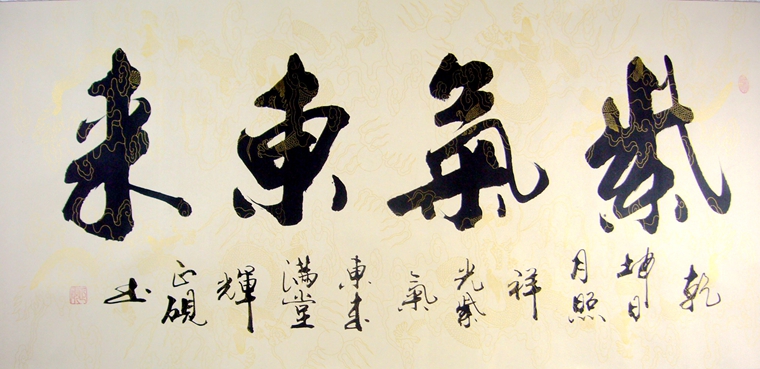 紫氣東來
乾坤日月照祥光紫氣東来满堂輝
正硯书